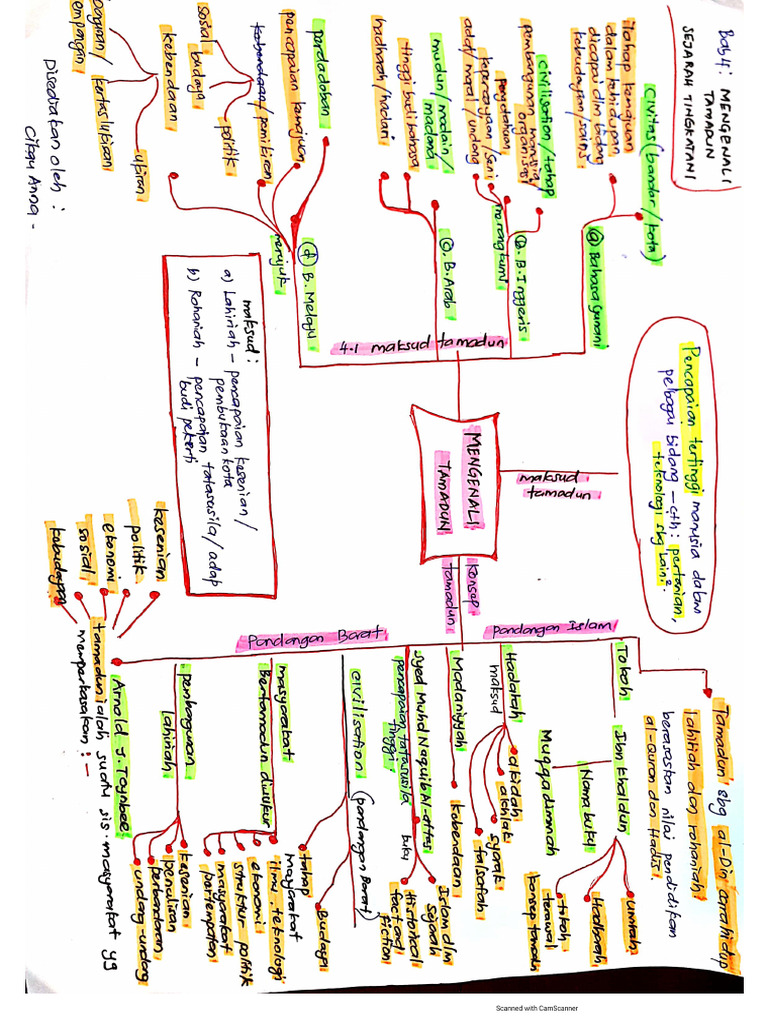 Bab 4: MENGENALI
TAMADUN
SEJARAH TINGKATAN 1
Civitas (bandar / kota)
Tahap kemajuan
dalam kehidupan
dicapai dlm bidang
kebudayaan/sains
@ Bahasa Yunani
civilisation / tahap
pembangunan manusia
organisasi
Pengetahuan
kepercayaan / seni
adat / moral / undang
merangkumi
ⓑ. B. Inggeris
mudun / madain /
madana
tinggi budi bahasa
hadharah / hadari
©. B. Arab
peradaban
pencapaian kemajuan
kebendaan / pemikiran
politik
sosial
budaya
kebendaan
ukiran
kertas lukisan
merujuk
ⓓ B. Melayu
4.1 maksud tamadun
Disediakan oleh :
Cikgu Anna -
maksud :
a) Lahiriah - pencapaian kesenian /
pembukaan kota
b) Rohaniah - pencapaian tatasusila / adab
budi pekerti
Pencapaian tertinggi manusia dalam
pelbagai bidang - cth: pertanian,
teknologi sbg lain².
maksud
tamadun
MENGENALI
TAMADUN
konsep
tamadun
Pandangan Islam
Pandangan Barat
Tamadun sbg al-Din / cara hidup
lahiriah dan rohaniah
berasaskan nilai pendidikan
al-Quran dan Hadis.
Tokoh
Ibn Khaldun
umrah
Hadharah
tokoh
terawal
konsep tamadun
Nama buku
Muqqadimmah
Hadarah
maksud
akidah
akhlak
syarak
falsafah
Madaniyyah
kebendaan
Syed Muhd Naquib Al-attas
pencapaian tatasusila
tinggi
buku
Islam dlm
Sejarah
Historical
fact and
fiction
civilisation (pandangan Barat)
Budaya
tahap
Masyarakat
masyarakat
Bertamadun diukur
ilmu, teknologi
ekonomi
struktur politik
masyarakat
pertempatan
pembangunan
lahiriah
kesenian
penulisan
perbandaran
undang-undang
Arnold J. Toynbee:
tamadun ialah suatu sis. masyarakat yg
memperkasakan :-
kesenian
politik
ekonomi
sosial
kebudayaan
Scanned with CamScanner